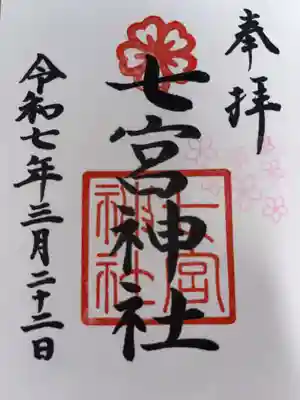 奉拝
七宮神社
七宮神社
令和七年三月二十二日